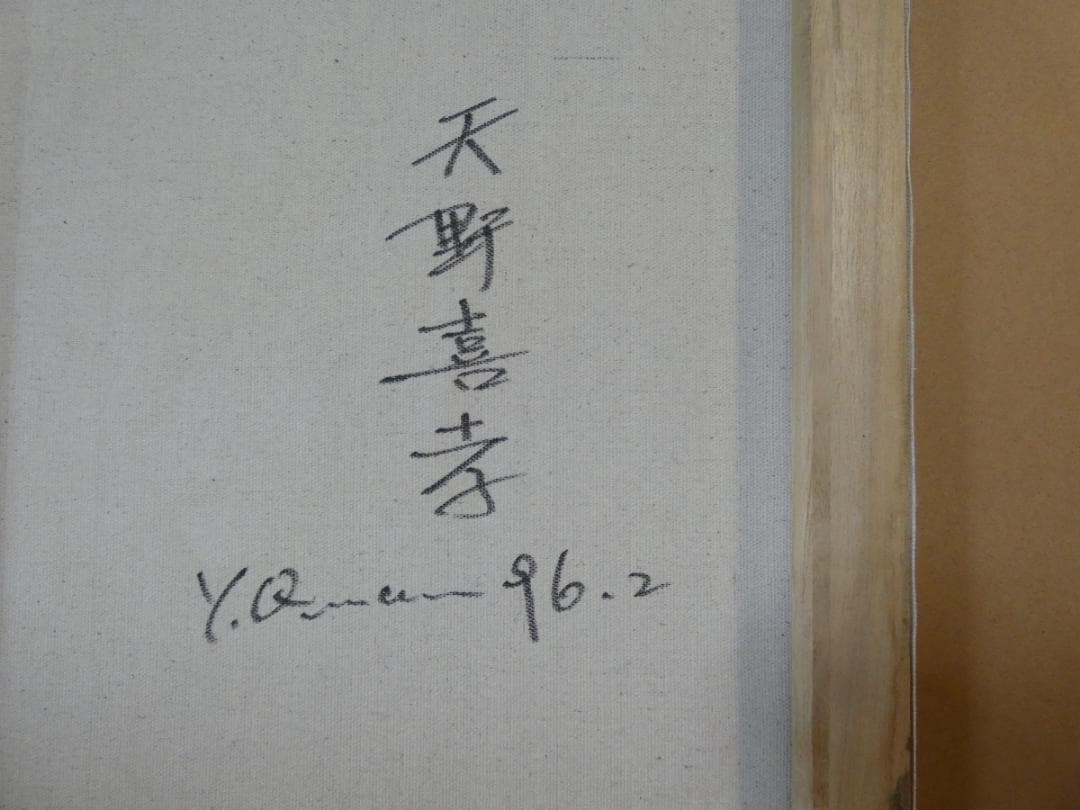 天野喜孝
Y. Amano 96.2